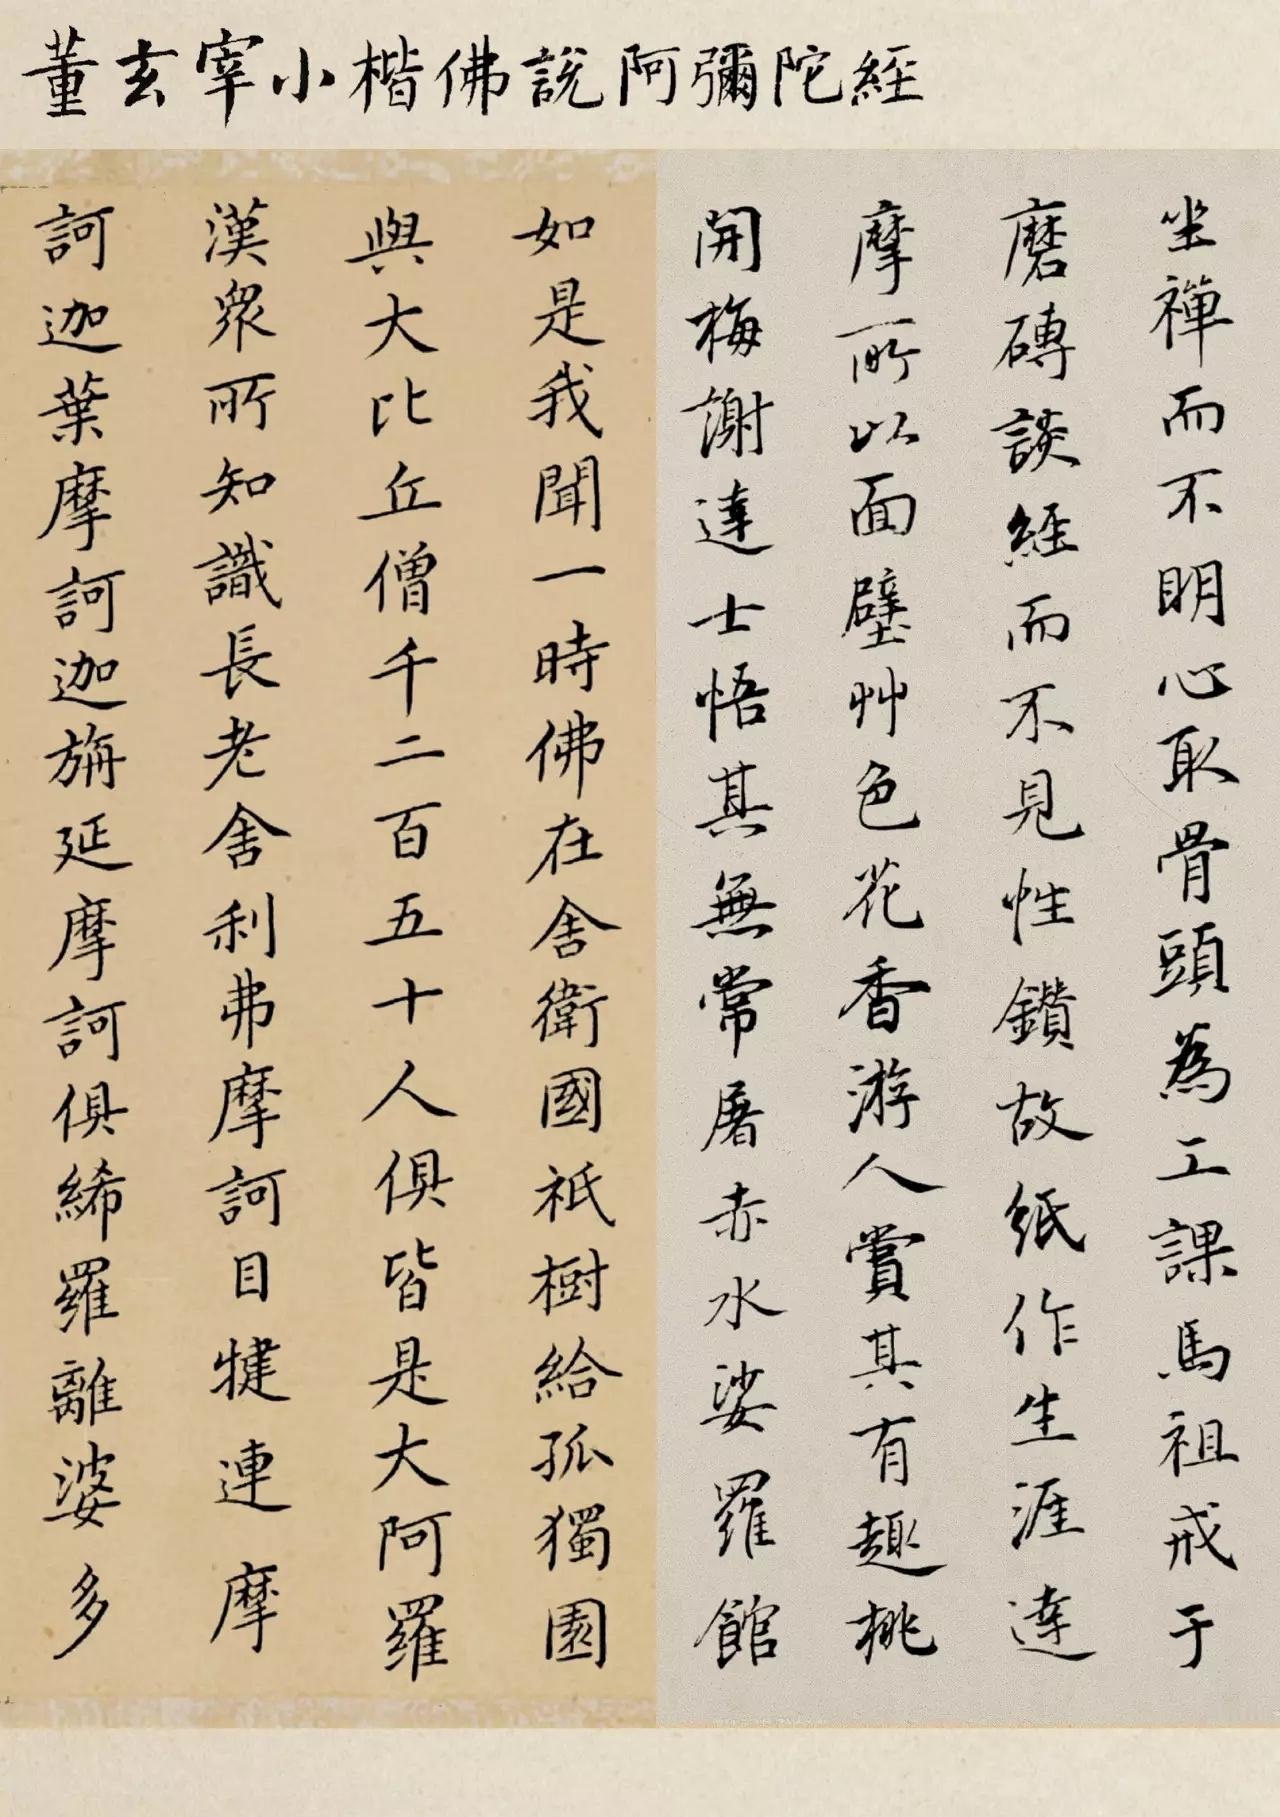 董玄宰小楷佛說阿彌陀經
坐禪而不明心取骨頭為工課馬祖戒于
磨磚談經而不見性鑽故紙作生涯達
摩所以面壁艸色花香游人賞其有趣桃
開梅謝達士悟其無常屠赤水娑羅館
如是我聞一時佛在舍衛國祇樹給孤獨園
與大比丘僧千二百五十人俱皆是大阿羅
漢眾所知識長老舍利弗摩訶目犍連摩
訶迦葉摩訶迦旃延摩訶俱絺羅離婆多